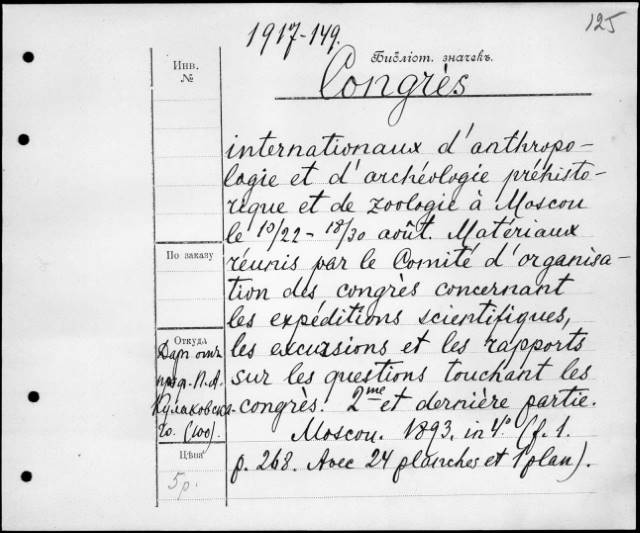 125
1917-149.
Библіот. значекъ.
Инв.
№
Congrès
internationaux d'anthropo-
logie et d'archéologie préhisto-
rique et de zoologie à Moscou
le 10/22 – 18/30 août. Matériaux
réunis par le Comité d'organisa-
tion des congrès concernant
les expéditions scientifiques,
les excursions et les rapports
sur les questions touchant les
congrès. 2me et dernière partie.
Moscou. 1893. in 4º (f. 1.
p. 268. Avec 24 planches et 1 plan).
По заказу
Откуда
Дар отъ
проф. П.А.
Кулаковска-
го. (100).
Цѣна
5 р.